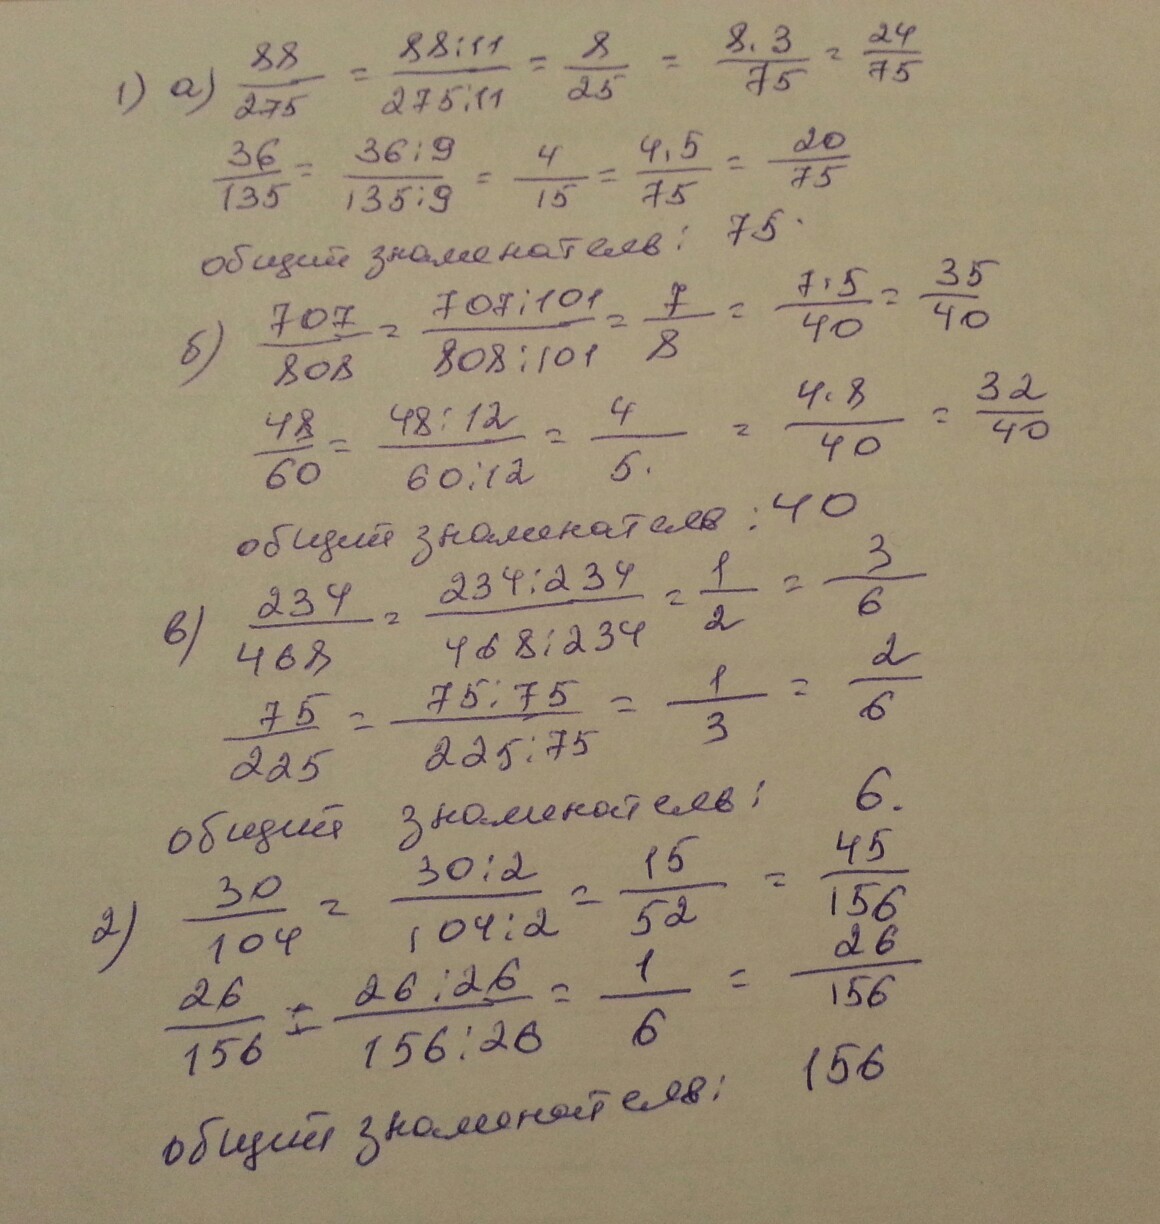 1) а) 88/275 = 88:11/275:11 = 8/25 = 8·3/75 = 24/75
36/135 = 36:9/135:9 = 4/15 = 4·5/75 = 20/75
общий знаменатель: 75.
б) 707/808 = 707:101/808:101 = 7/8 = 7·5/40 = 35/40
48/60 = 48:12/60:12 = 4/5. = 4·8/40 = 32/40
общий знаменатель: 40
в) 234/468 = 234:234/468:234 = 1/2 = 3/6
75/225 = 75:75/225:75 = 1/3 = 2/6
общий знаменатель: 6.
2) 30/104 = 30:2/104:2 = 15/52 = 45/156
26/156 = 26:26/156:26 = 1/6 = 26/156
общий знаменатель: 156